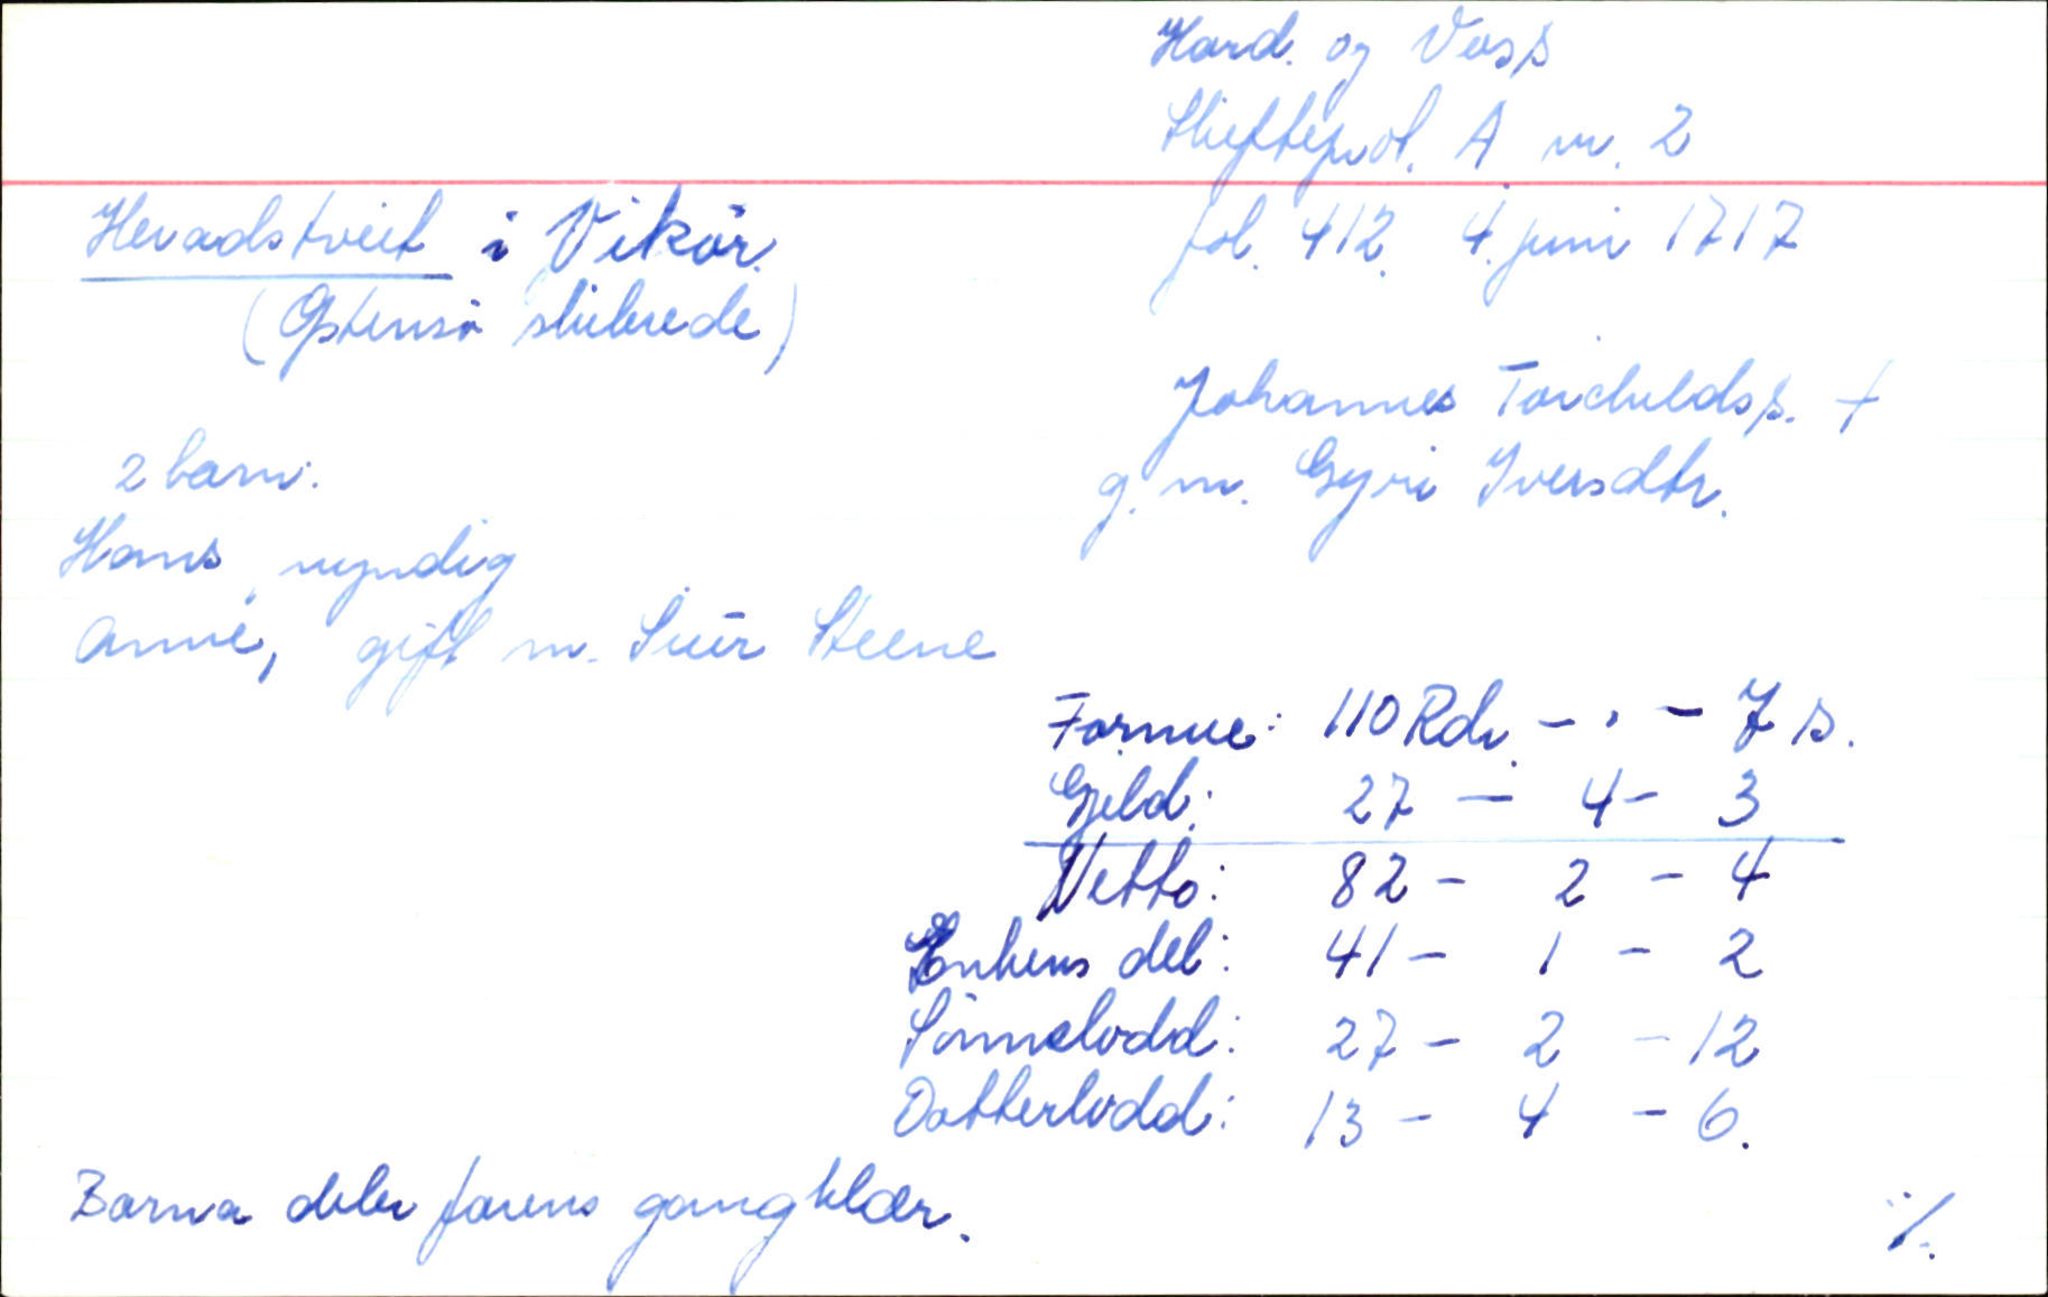 Hard. og Voss
Skifteprot. A nr. 2
fol. 412. 4. juni 1717
Heradstveit i Vikör.
(Östensö skibrede)
Johannes Torchildss. †
g. m. Gyri Iversdtr.
2 barn:
Hans, myndig
Anne, gift m. Siur Steene
Formue: 110 Rdr. - . - 7 s.
Gjeld: 27 - 4 - 3
Netto: 82 - 2 - 4
Enkens del: 41 - 1 - 2
Sönnelodd: 27 - 2 - 12
Datterlodd: 13 - 4 - 6.
Barna deler farens gangklær.
./.